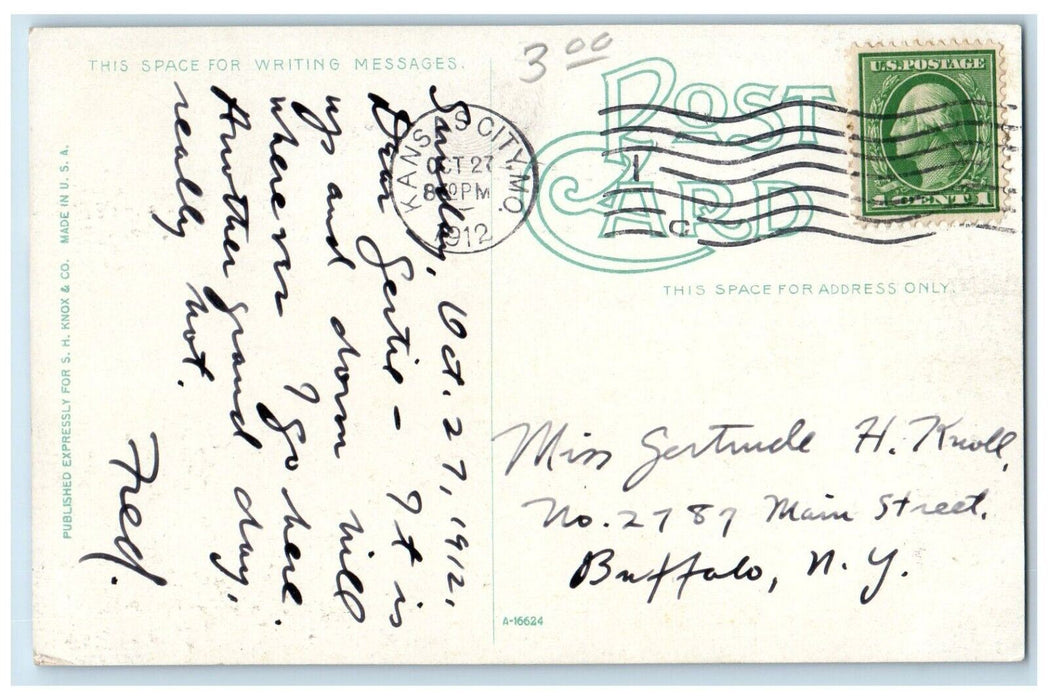 THIS SPACE FOR WRITING MESSAGES.
3 00
POST CARD
U.S. POSTAGE
1 CENT 1
KANSAS CITY, MO.
OCT 27
8 30 PM
1912
1
C
THIS SPACE FOR ADDRESS ONLY.
Sunday, Oct. 27, 1912.
Dear Gertie - It is
up and down hill
wherever I go here.
Another grand day,
really hot.
Fred.
Miss Gertrude H. Knoll,
No. 2787 Main Street.
Buffalo, N. Y.
PUBLISHED EXPRESSLY FOR S. H. KNOX & CO. MADE IN U. S. A.
A-16624